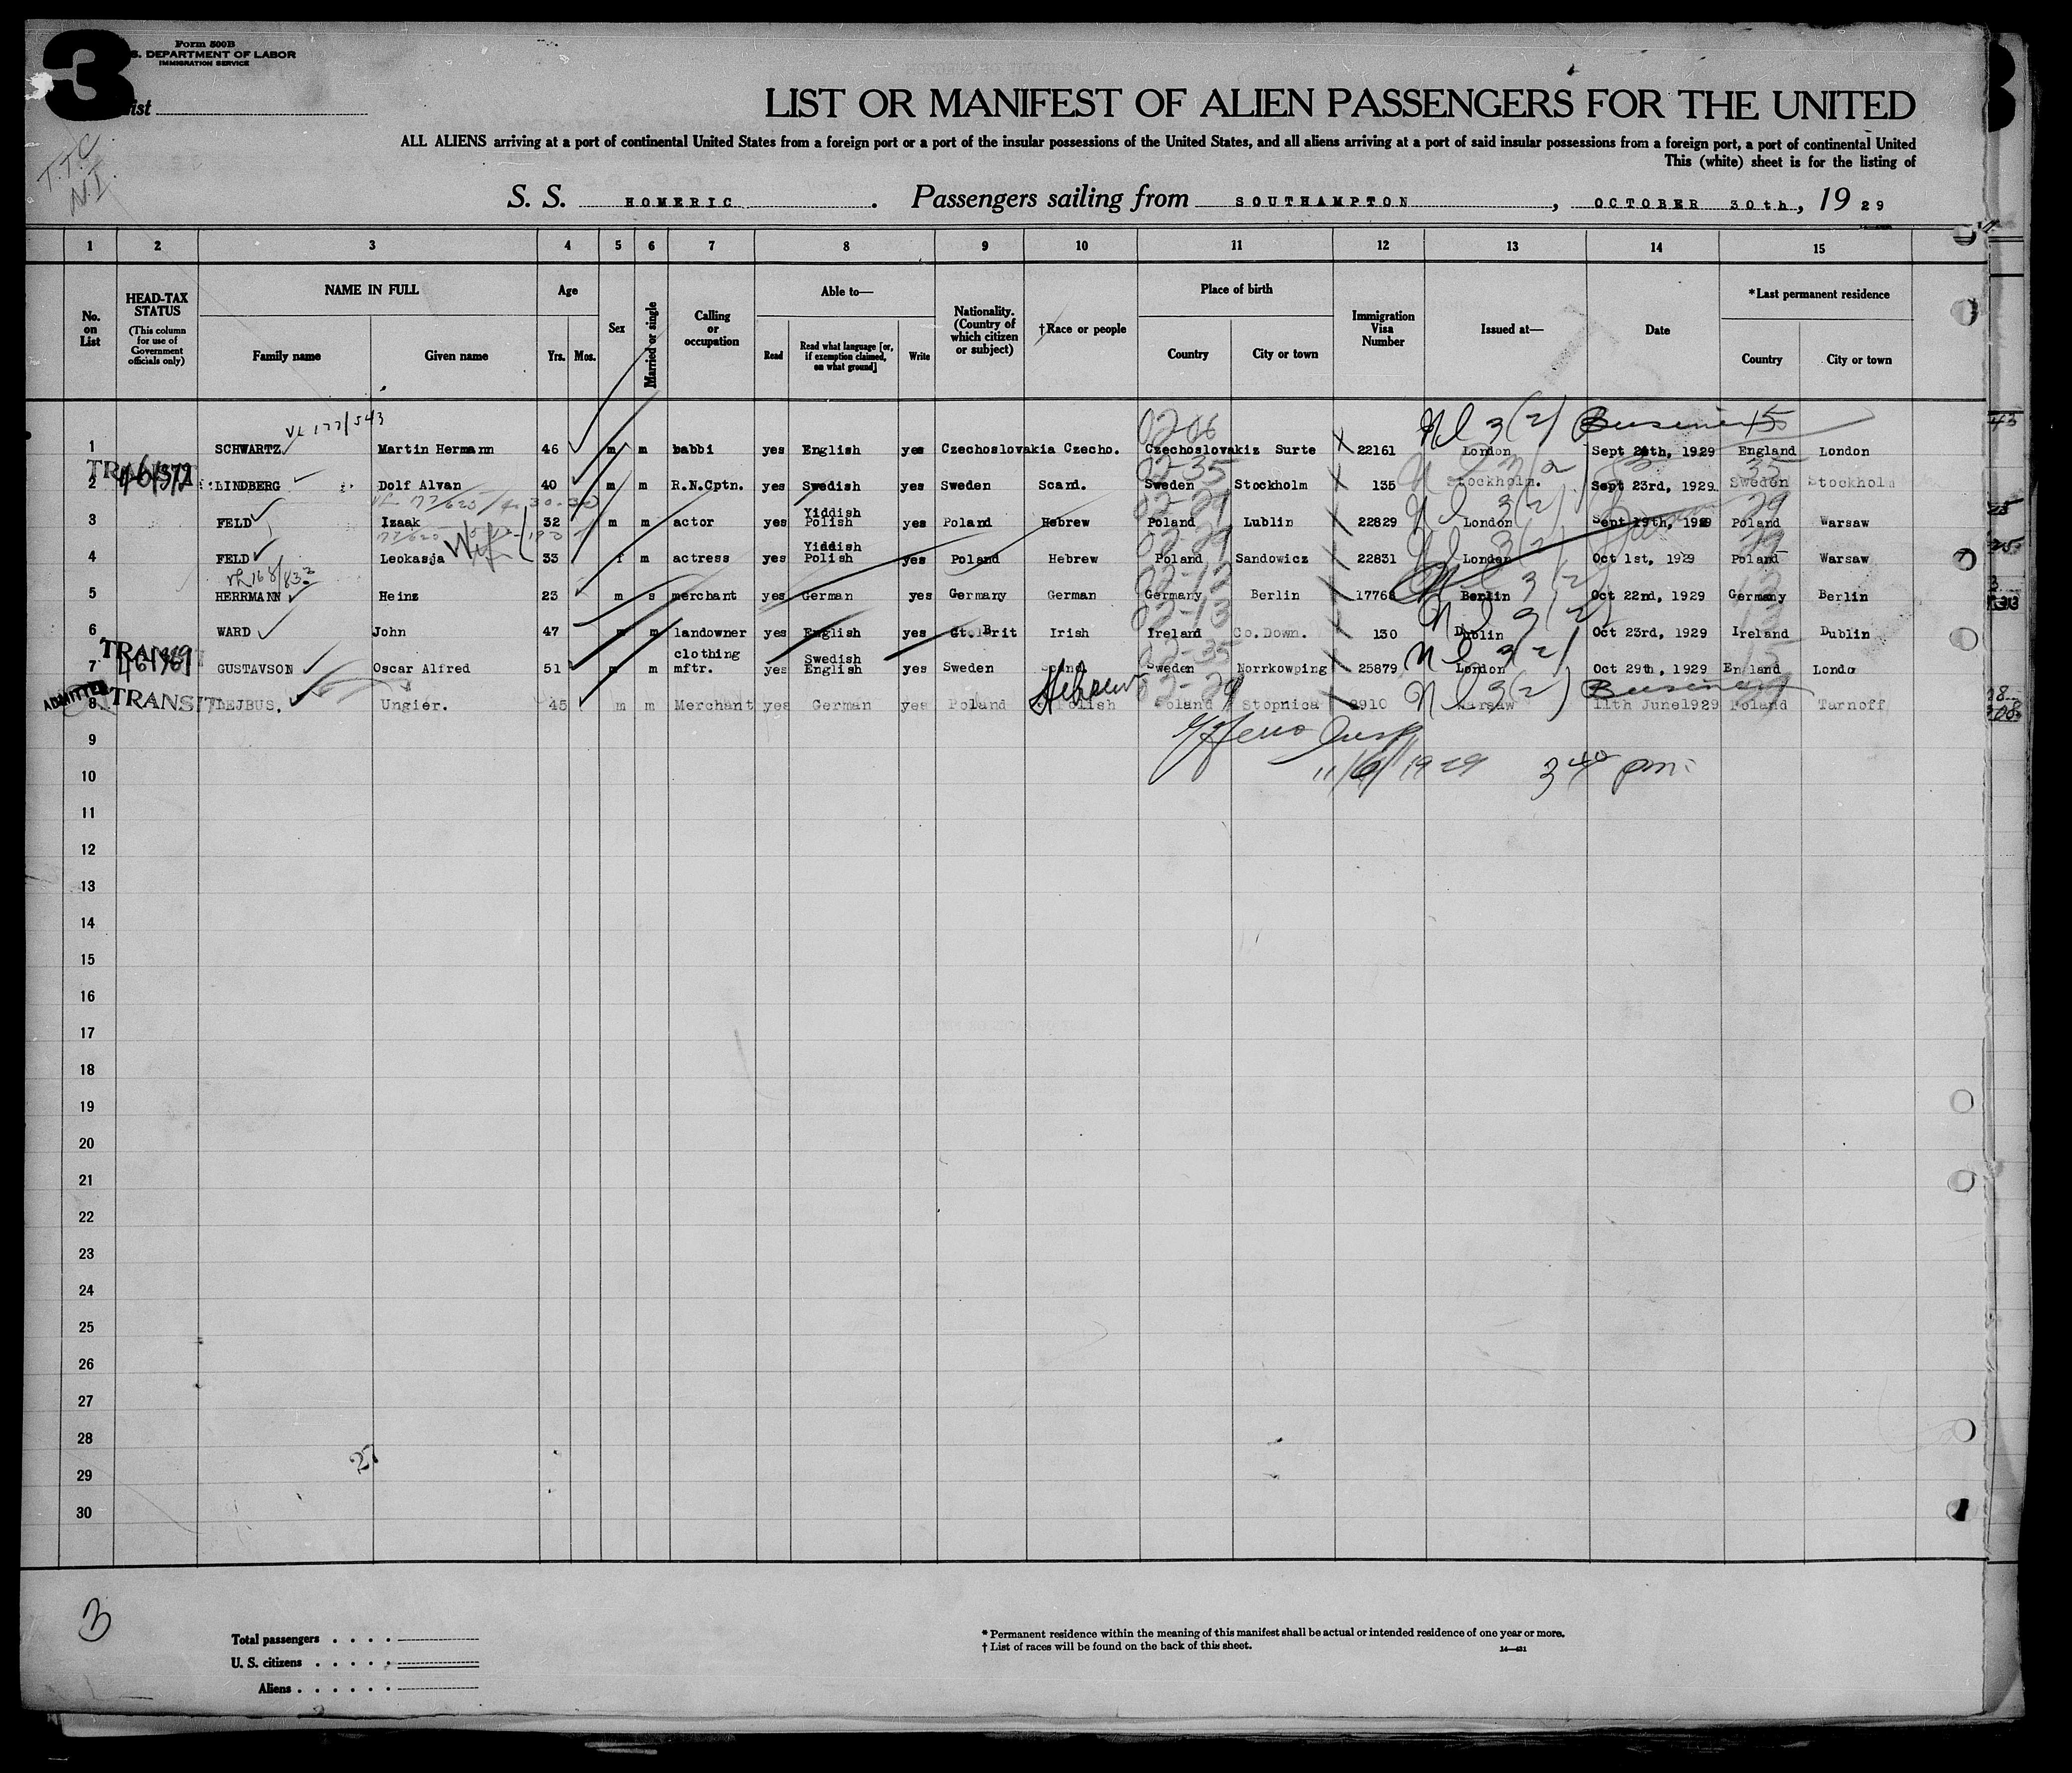 3
Form 500B
S. DEPARTMENT OF LABOR
IMMIGRATION SERVICE
ist
T.T.C.
N.I.
LIST OR MANIFEST OF ALIEN PASSENGERS FOR THE UNITED
ALL ALIENS arriving at a port of continental United States from a foreign port or a port of the insular possessions of the United States, and all aliens arriving at a port of said insular possessions from a foreign port, a port of continental United
This (white) sheet is for the listing of
S. S. HOMERIC. Passengers sailing from SOUTHAMPTON, OCTOBER 30th, 19 29
1 2 3 4 5 6 7 8 9 10 11 12 13 14 15
No. on List
HEAD-TAX STATUS (This column for use of Government officials only)
NAME IN FULL Family name Given name
Age Yrs. Mos.
Sex
Married or single
Calling or occupation
Able to— Read Read what language [or, if exemption claimed, on what ground] Write
Nationality. (Country of which citizen or subject)
†Race or people
Place of birth Country City or town
Immigration Visa Number
Issued at—
Date
*Last permanent residence Country City or town
VL 177/543 02-06 Nl 3(2) Business 15
1 SCHWARTZ Martin Hermann 46 m m babbi yes English yes Czechoslovakia Czecho. Czechoslovakiz Surte 22161 London Sept 24th, 1929 England London
TRANSIT 02-35 3(2 35
2 LINDBERG Dolf Alvan 40 m m R.N.Cptn. yes Swedish yes Sweden Scand. Sweden Stockholm 135 Stockholm. Sept 23rd, 1929 Sweden Stockholm
02-29 Nl 3(2) 29
3 FELD Izaak 32 m m actor yes Yiddish Polish yes Poland Hebrew Poland Lublin 22829 London Sept 19th, 1929 Poland Warsaw
Wife 02-29 Nl 3(2) 29
4 FELD Leokasja 33 f m actress yes Yiddish Polish yes Poland Hebrew Poland Sandowicz 22831 London Oct 1st, 1929 Poland Warsaw
02-12 Nl 3(2) 12
5 HERRMANN Heinz 23 m s merchant yes German yes Germany German Germany Berlin 17768 Berlin Oct 22nd, 1929 Germany Berlin
02-13 Nl 3(2) 13
6 WARD John 47 m m landowner yes English yes Gt.Brit Irish Ireland Co.Down. 130 Dublin Oct 23rd, 1929 Ireland Dublin
TRANSIT 02-35 Nl 3(2) 15
7 GUSTAVSON Oscar Alfred 51 m m clothing mftr. yes Swedish English yes Sweden Scand. Sweden Norrkowping 25879 London Oct 29th, 1929 England Londo
ADMITTED TRANSIT Hebrew 02-29 Nl 3(2) Business 29
8 DEJBUS, Ungier. 45 m m Merchant yes German yes Poland Polish Poland Stopnica 2910 Warsaw 11th June1929 Poland Tarnoff
9
11/6/1929 3 40 pm.
10
11
12
13
14
15
16
17
18
19
20
21
22
23
24
25
26
27
28
27
29
30
3
Total passengers
U. S. citizens
Aliens
* Permanent residence within the meaning of this manifest shall be actual or intended residence of one year or more.
† List of races will be found on the back of this sheet.
14—421